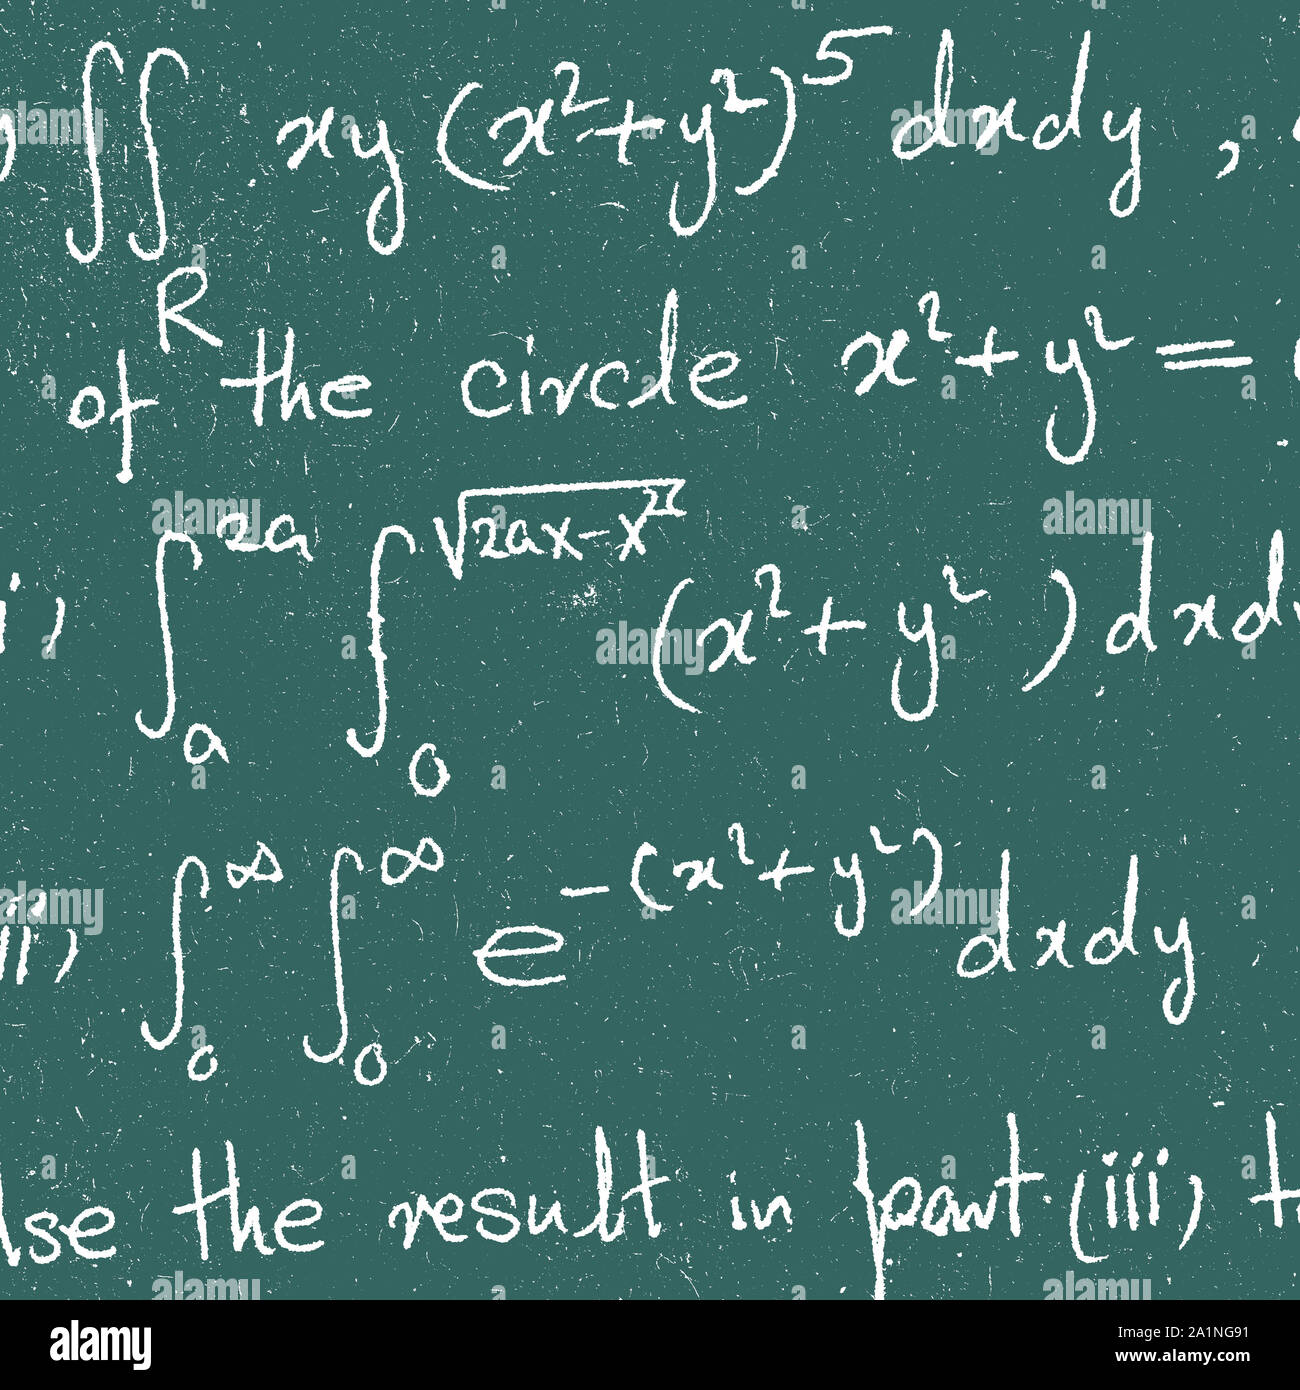 ) ∬_R xy(x²+y²)⁵ dxdy,
of the circle x²+y² =
i) ∫_a^{2a} ∫_0^{√(2ax-x²)} (x²+y²) dxdy
ii) ∫_0^∞ ∫_0^∞ e^{-(x²+y²)} dxdy
Use the result in part (iii) t
alamy
Image ID: 2A1NG91
www.alamy.com